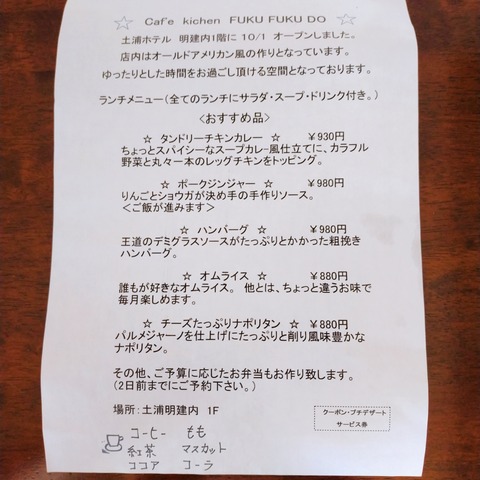 ☆ Cafe kichen FUKU FUKU DO ☆
土浦ホテル 明建内1階に 10/1 オープンしました。
店内はオールドアメリカン風の作りとなっています。
ゆったりとした時間をお過ごし頂ける空間となっております。
ランチメニュー(全てのランチにサラダ・スープ・ドリンク付き。)
<おすすめ品>
☆ タンドリーチキンカレー ☆ ¥930円
ちょっとスパイシーなスープカレー風仕立てに、カラフル
野菜と丸々一本のレッグチキンをトッピング。
☆ ポークジンジャー ☆ ¥980円
りんごとショウガが決め手の手作りソース。
<ご飯が進みます>
☆ ハンバーグ ☆ ¥980円
王道のデミグラスソースがたっぷりとかかった粗挽き
ハンバーグ。
☆ オムライス ☆ ¥880円
誰もが好きなオムライス。 他とは、ちょっと違うお味で
毎月楽しめます。
☆ チーズたっぷりナポリタン ☆ ¥880円
パルメジャーノを仕上げにたっぷりと削り風味豊かな
ナポリタン。
その他、ご予算に応じたお弁当もお作り致します。
(2日前までにご予約下さい。)
場所:土浦明建内 1F
クーポン・プチデザート
サービス券
コーヒー もも
紅茶 マスカット
ココア コーラ